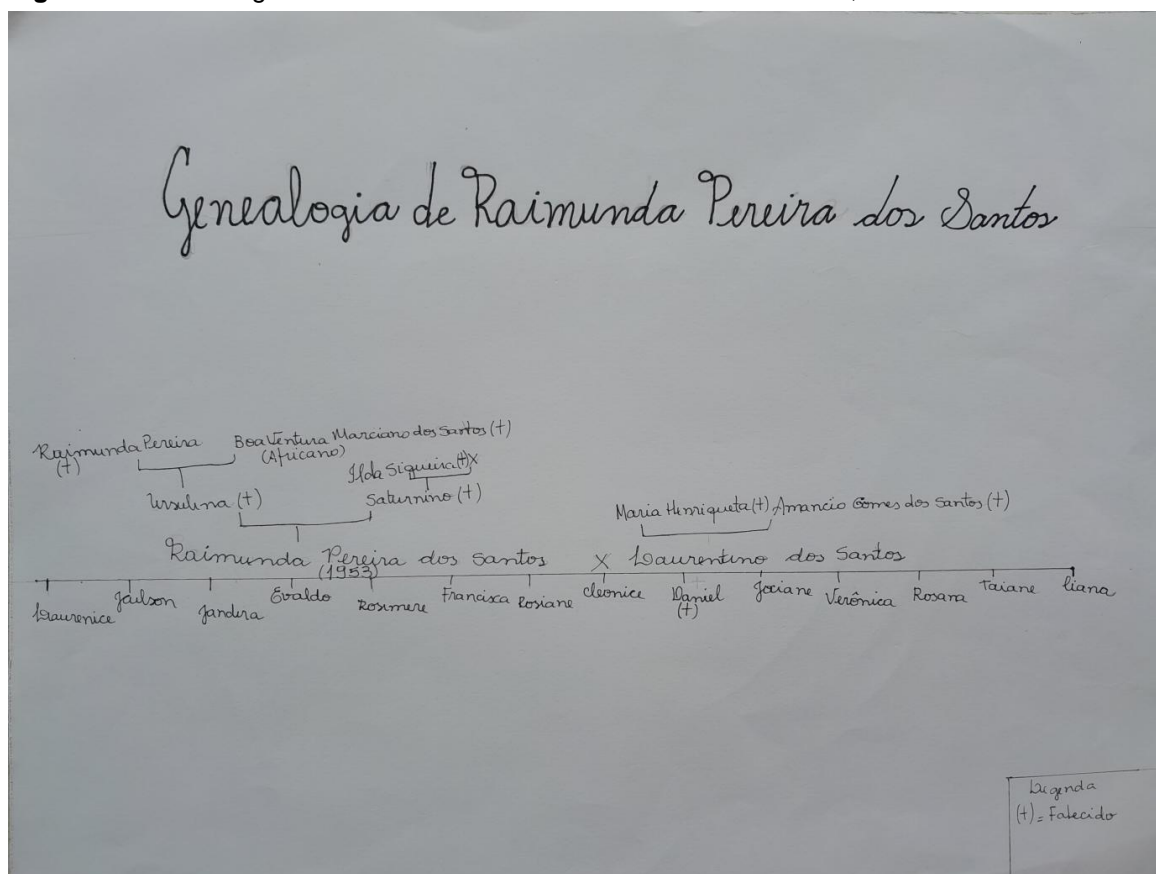 Genealogia de Raimunda Pereira dos Santos
Raimunda Pereira
(+)
BoaVentura Marciano dos Santos (+)
(Africano)
Ilda Siqueira (+) X
Ursulina (+)
Saturnino (+)
Maria Henriqueta (+) Amancio Gomes dos Santos (+)
Raimunda Pereira dos Santos X Laurentino dos Santos
(1953)
Laurenice
Jailson
Jandira
Evaldo
Rosimere
Francisca
Rosiane
Cleonice
Daniel
(+)
Jociane
Verônica
Rosana
Taiane
liana
Legenda
(+) = Falecido